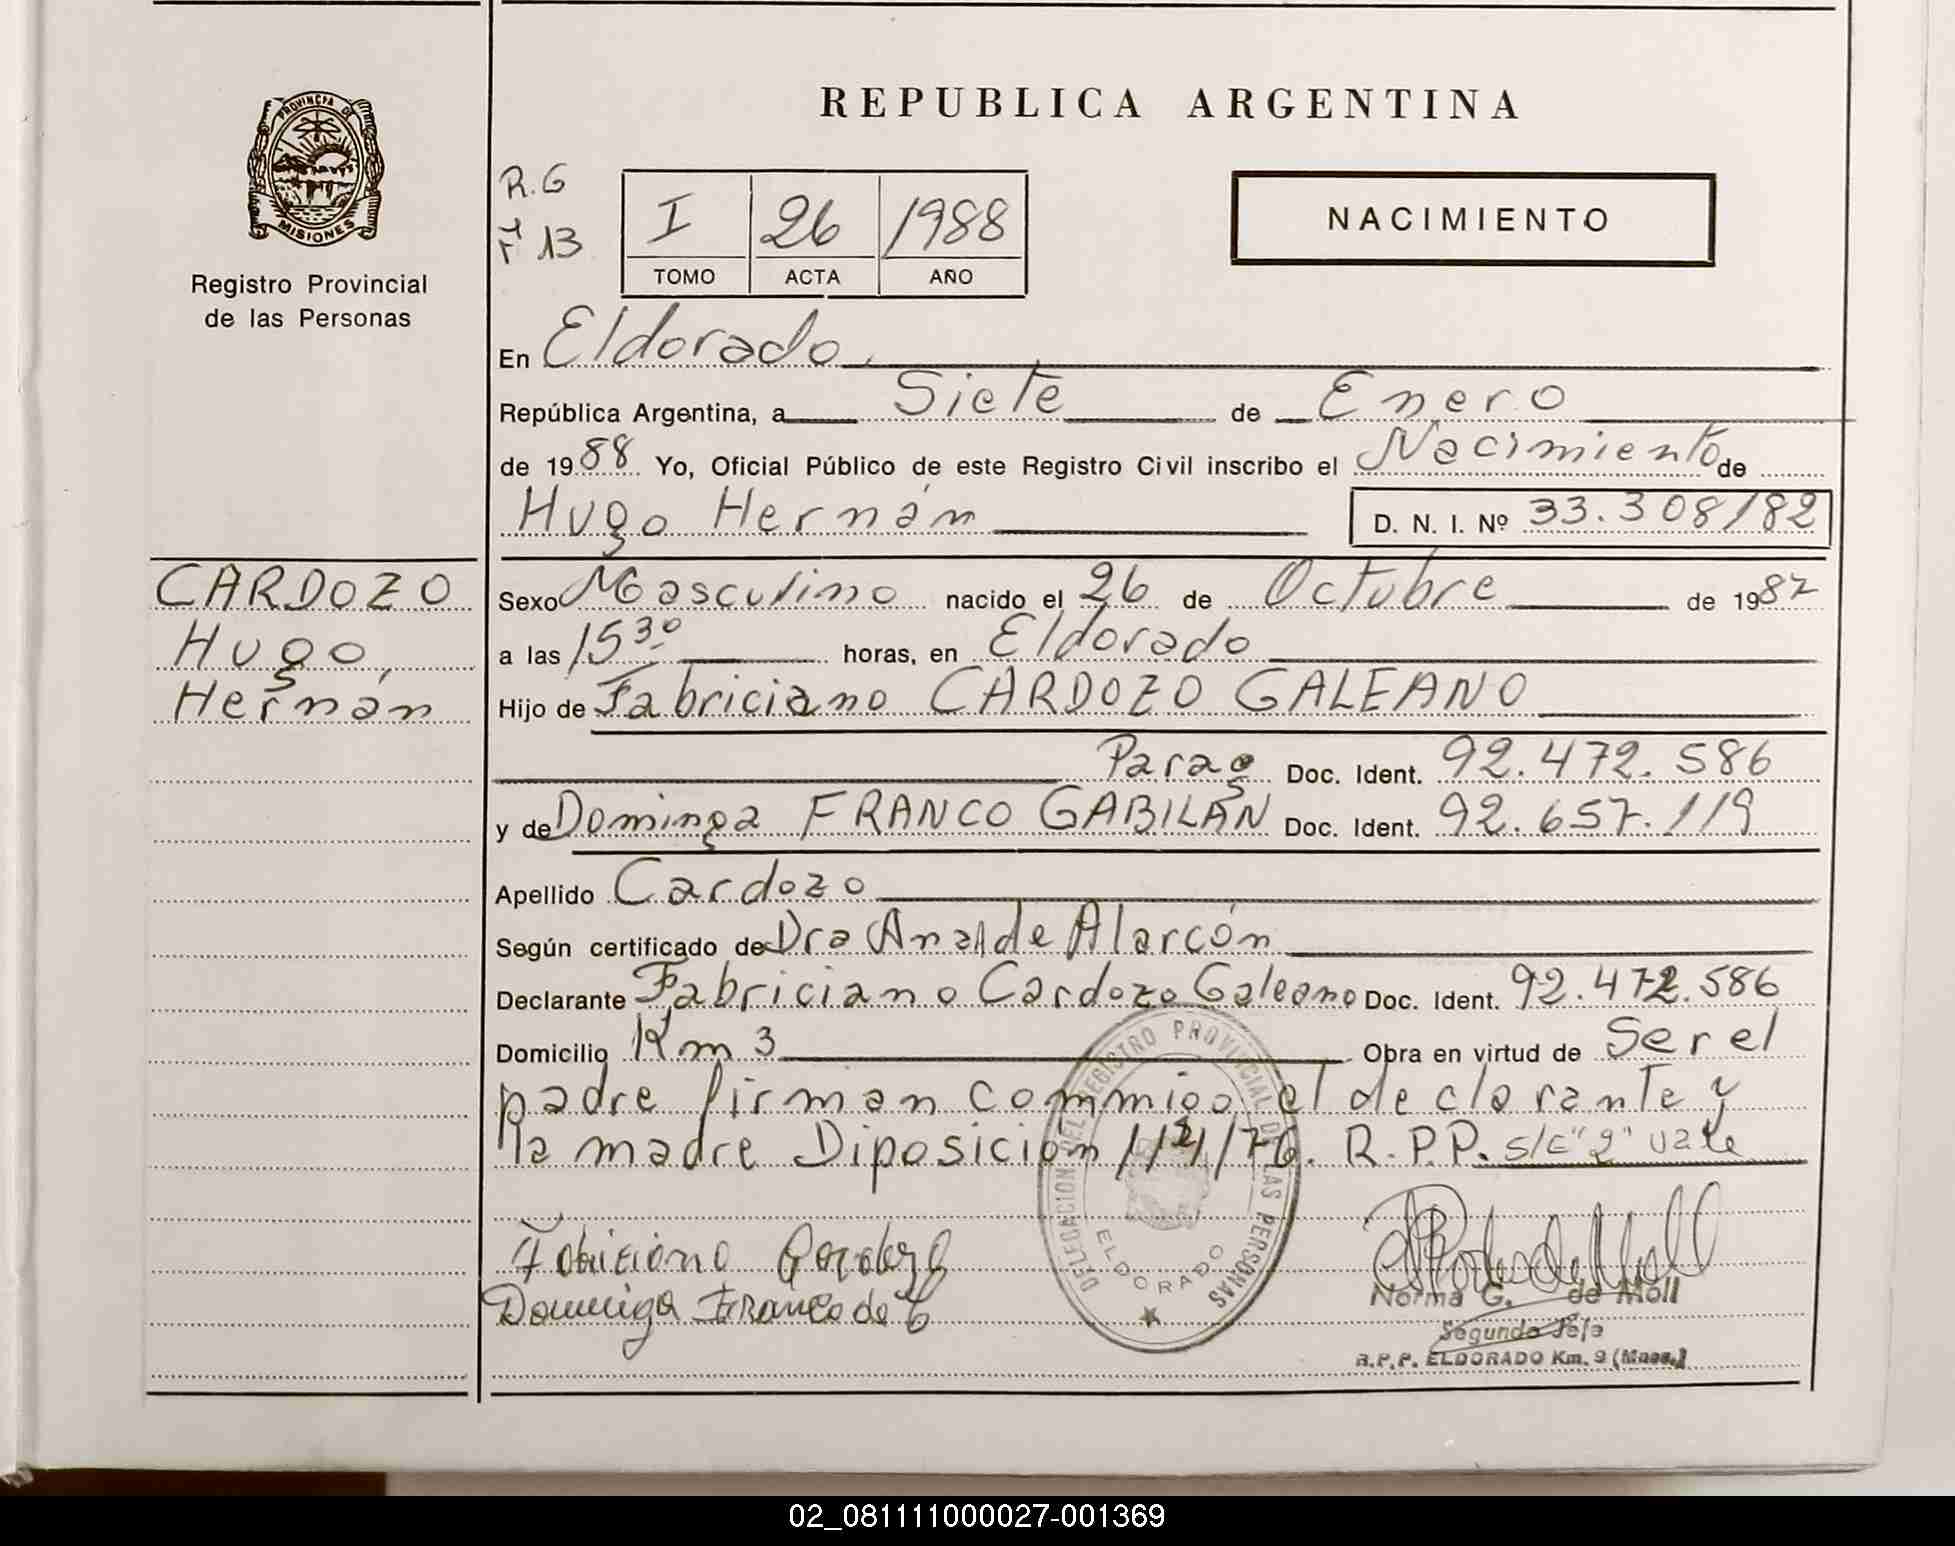 REPUBLICA ARGENTINA
PROVINCIA DE
MISIONES
Registro Provincial
de las Personas
R.G
Fº 13
I 26 1988
TOMO ACTA AÑO
NACIMIENTO
En Eldorado,
República Argentina, a Siete de Enero
de 1988 Yo, Oficial Público de este Registro Civil inscribo el Nacimiento de
Hugo Hernán D. N. I. Nº 33.308/182
CARDOZO
Hugo,
Hernán
Sexo Masculino nacido el 26 de Octubre de 1987
a las 15 30 horas, en Eldorado
Hijo de Fabriciano CARDOZO GALEANO
Parag Doc. Ident. 92.472.586
y de Dominga FRANCO GABILÁN Doc. Ident. 92.657.119
Apellido Cardozo
Según certificado de Dra Ana de Alarcón
Declarante Fabriciano Cardozo Galeano Doc. Ident. 92.472.586
Domicilio Km 3 Obra en virtud de Ser el
padre firman conmigo el declarante y
la madre Diposición 1/21/76. R.P.P. s/c "2" vale
DELEGACION DEL REGISTRO PROVINCIAL DE LAS PERSONAS
ELDORADO
Fabriciano Cardozo
Dominga Franco de C
Norma G. de Moll
Segundo Jefe
R.P.P. ELDORADO Km. 9 (Mnes.)
02_081111000027-001369